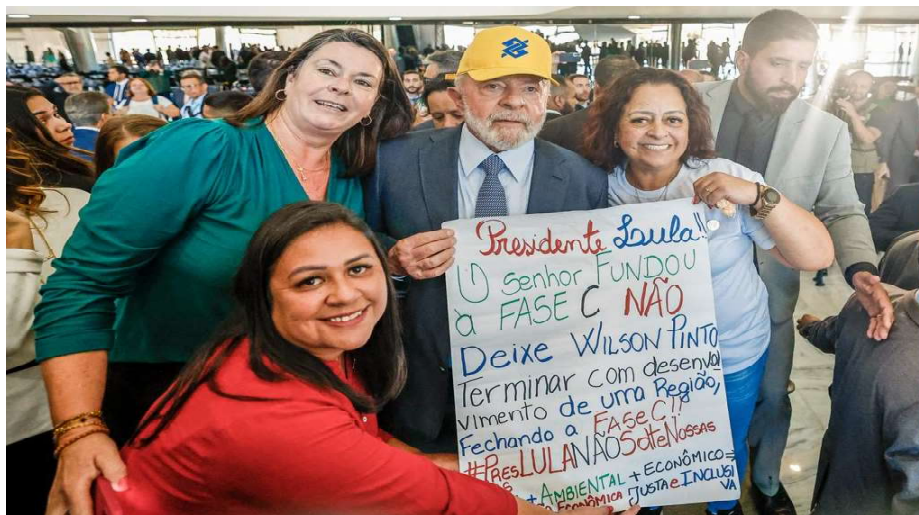 Presidente Lula!!
O senhor FUNDOU
a FASE C NÃO
Deixe WILSON PINTO
Terminar com desenvol
vimento de uma Região,
Fechando a FASE C!!
#PRESLULANÃOSolteNossas
+ AMBIENTAL + ECONÔMICO =
ECONÔMICA JUSTA e INCLUSI
VA